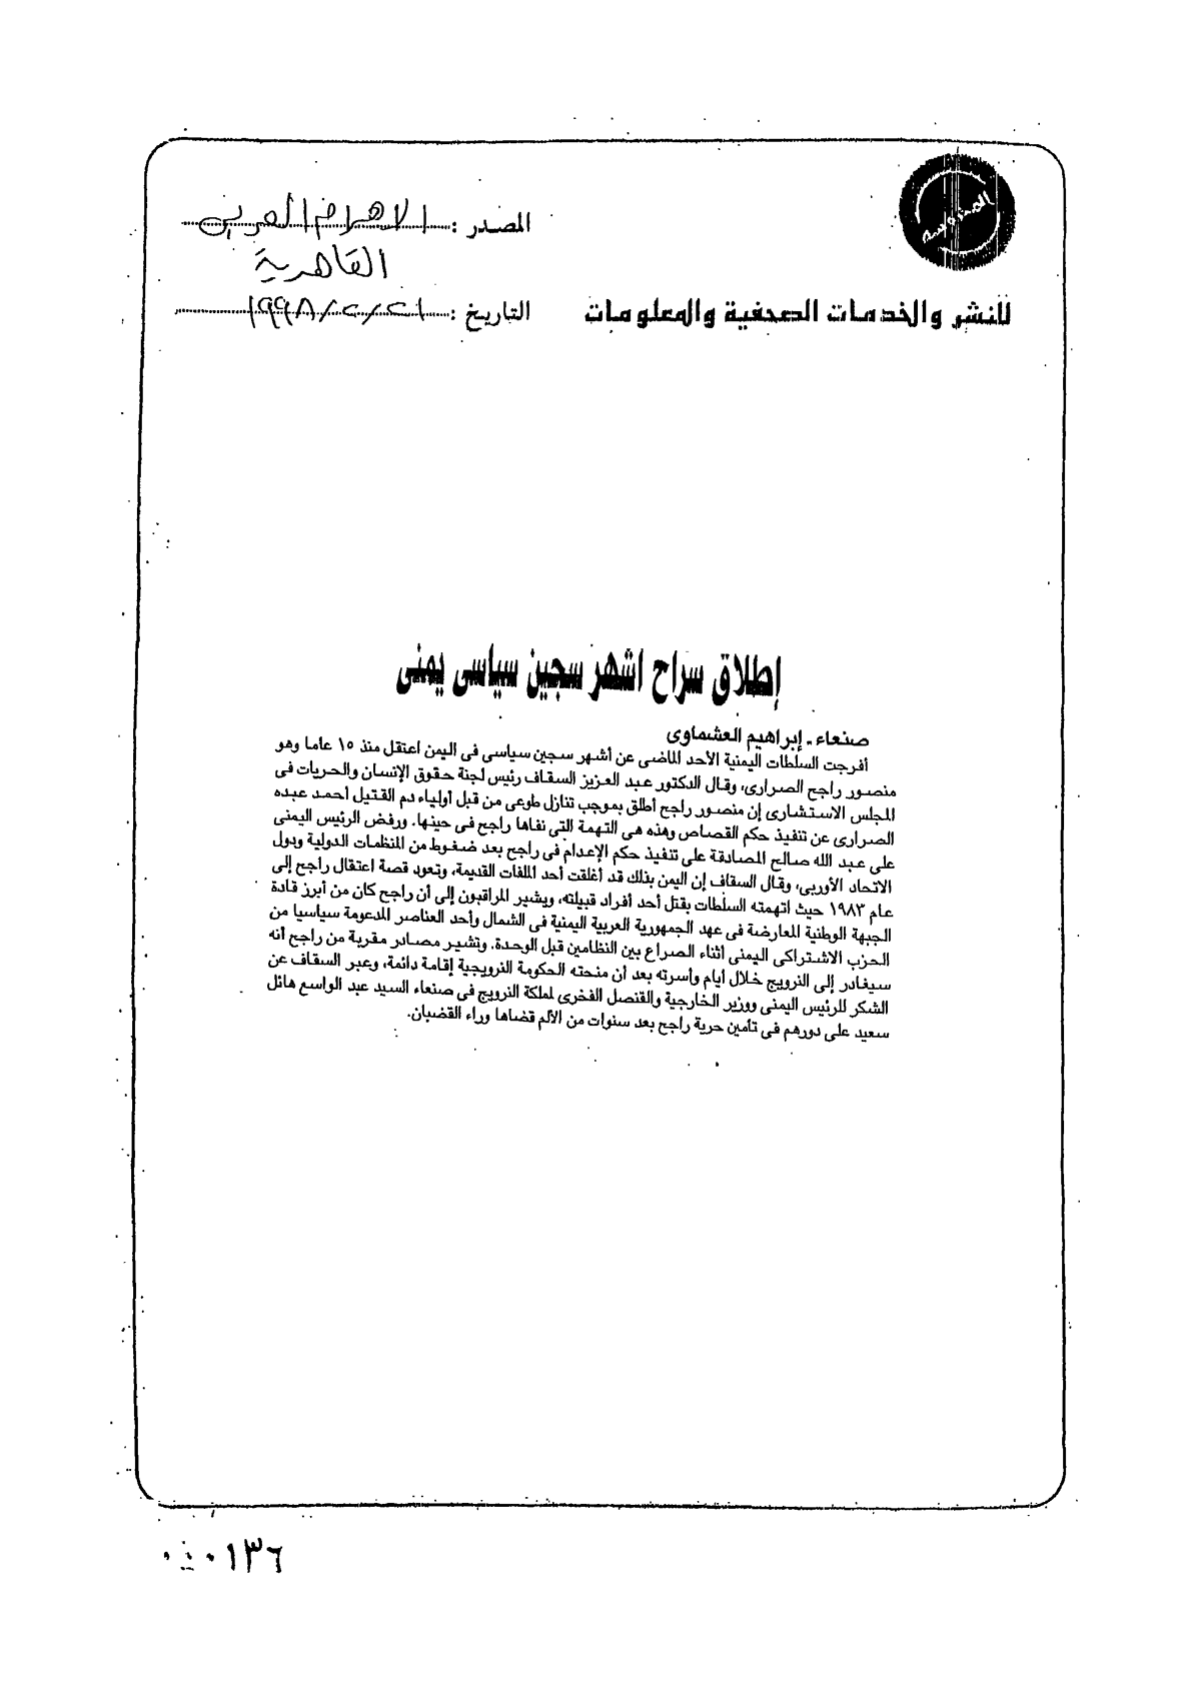 المحروسة
المصدر : الاهرام العربي
القاهرية
للنشر والخدمات الصحفية والمعلومات
التاريخ : ٢١/٢/١٩٩٨
إطلاق سراح اشهر سجين سياسى يمنى
صنعاء ـ إبراهيم العشماوى
أفرجت السلطات اليمنية الأحد الماضى عن أشهر سجين سياسى فى اليمن اعتقل منذ ١٥ عاما وهو
منصور راجح الصرارى، وقال الدكتور عبد العزيز السقاف رئيس لجنة حقوق الإنسان والحريات فى
المجلس الاستشارى إن منصور راجح أطلق بموجب تنازل طوعى من قبل أولياء دم القتيل أحمد عبده
الصرارى عن تنفيذ حكم القصاص وهذه هى التهمة التى نفاها راجح فى حينها. ورفض الرئيس اليمنى
على عبد الله صالح المصادقة على تنفيذ حكم الإعدام فى راجح بعد ضغوط من المنظمات الدولية ودول
الاتحاد الأوربى، وقال السقاف إن اليمن بذلك قد أغلقت أحد الملفات القديمة، وتعود قصة اعتقال راجح إلى
عام ١٩٨٣ حيث اتهمته السلطات بقتل أحد أفراد قبيلته، ويشير المراقبون إلى أن راجح كان من أبرز قادة
الجبهة الوطنية المعارضة فى عهد الجمهورية العربية اليمنية فى الشمال وأحد العناصر المدعومة سياسيا من
الحزب الاشتراكى اليمنى أثناء الصراع بين النظامين قبل الوحدة. وتشير مصادر مقربة من راجح أنه
سيغادر إلى النرويج خلال أيام وأسرته بعد أن منحته الحكومة النرويجية إقامة دائمة، وعبر السقاف عن
الشكر للرئيس اليمنى ووزير الخارجية والقنصل الفخرى لمملكة النرويج فى صنعاء السيد عبد الواسع هائل
سعيد على دورهم فى تأمين حرية راجح بعد سنوات من الألم قضاها وراء القضبان.